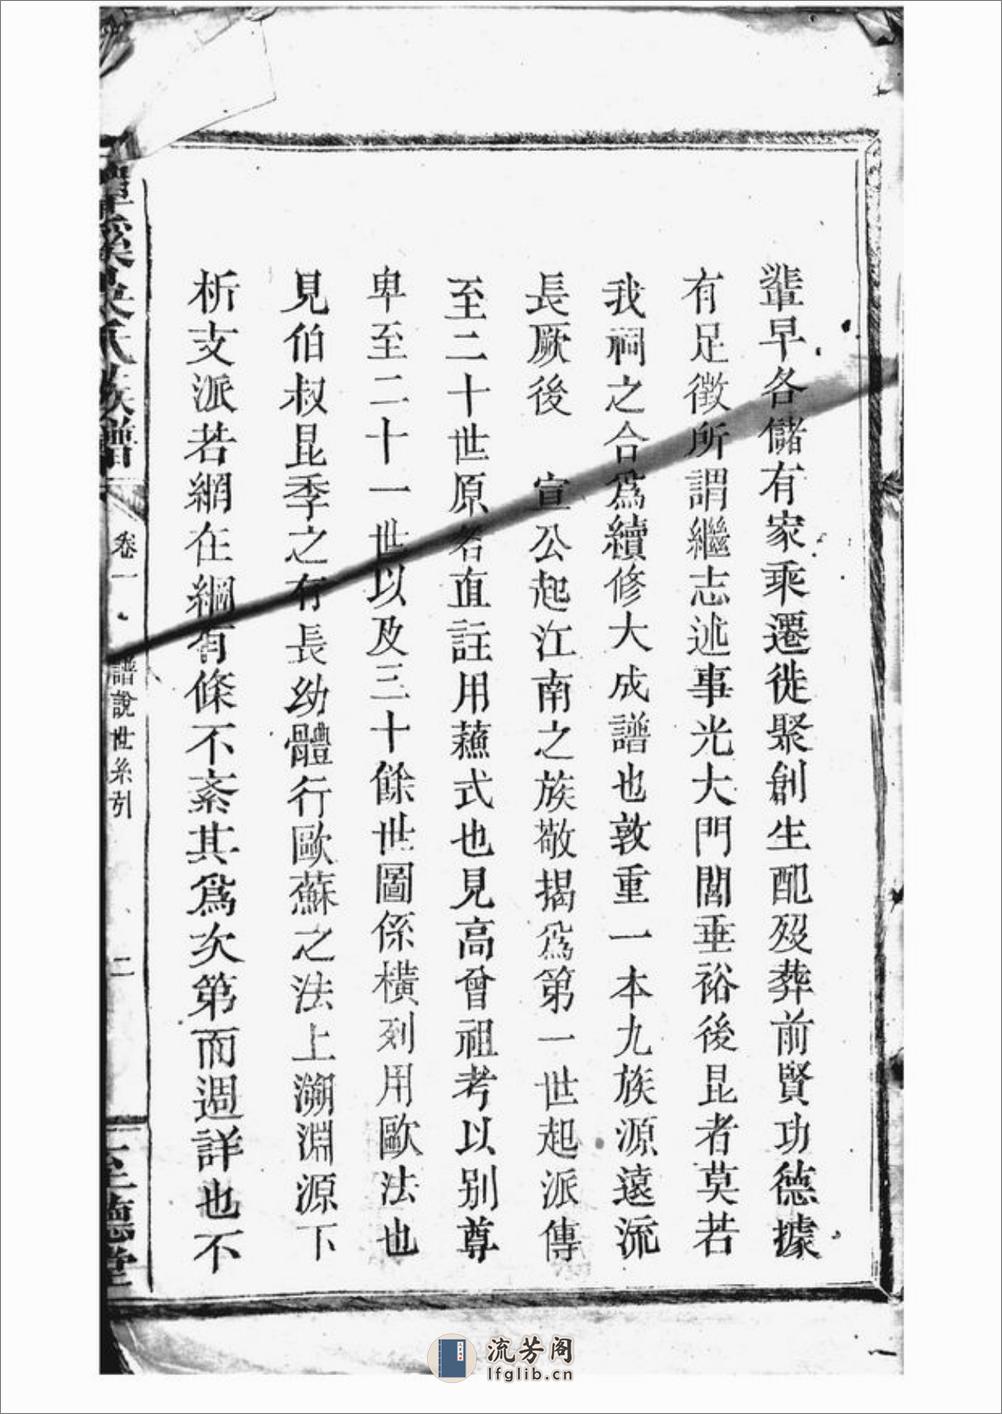 輩早各儲有家乘遷徙聚創生配歿葬前賢功德據
有足徵所謂繼志述事光大門閭垂裕後昆者莫若
我祠之合爲續修大成譜也敦重一本九族源遠流
長厥後 宣公起江南之族敬揭爲第一世起派傳
至二十世原各直註用蘓式也見高曾祖考以別尊
卑至二十一世以及三十餘世圖係橫列用歐法也
見伯叔昆季之有長幼體行歐蘇之法上溯淵源下
析支派若網在綱有條不紊其爲次第而週詳也不
潭溪吳氏族譜
卷一 譜說世系引 二
至德堂
流芳阁
lfglib.cn